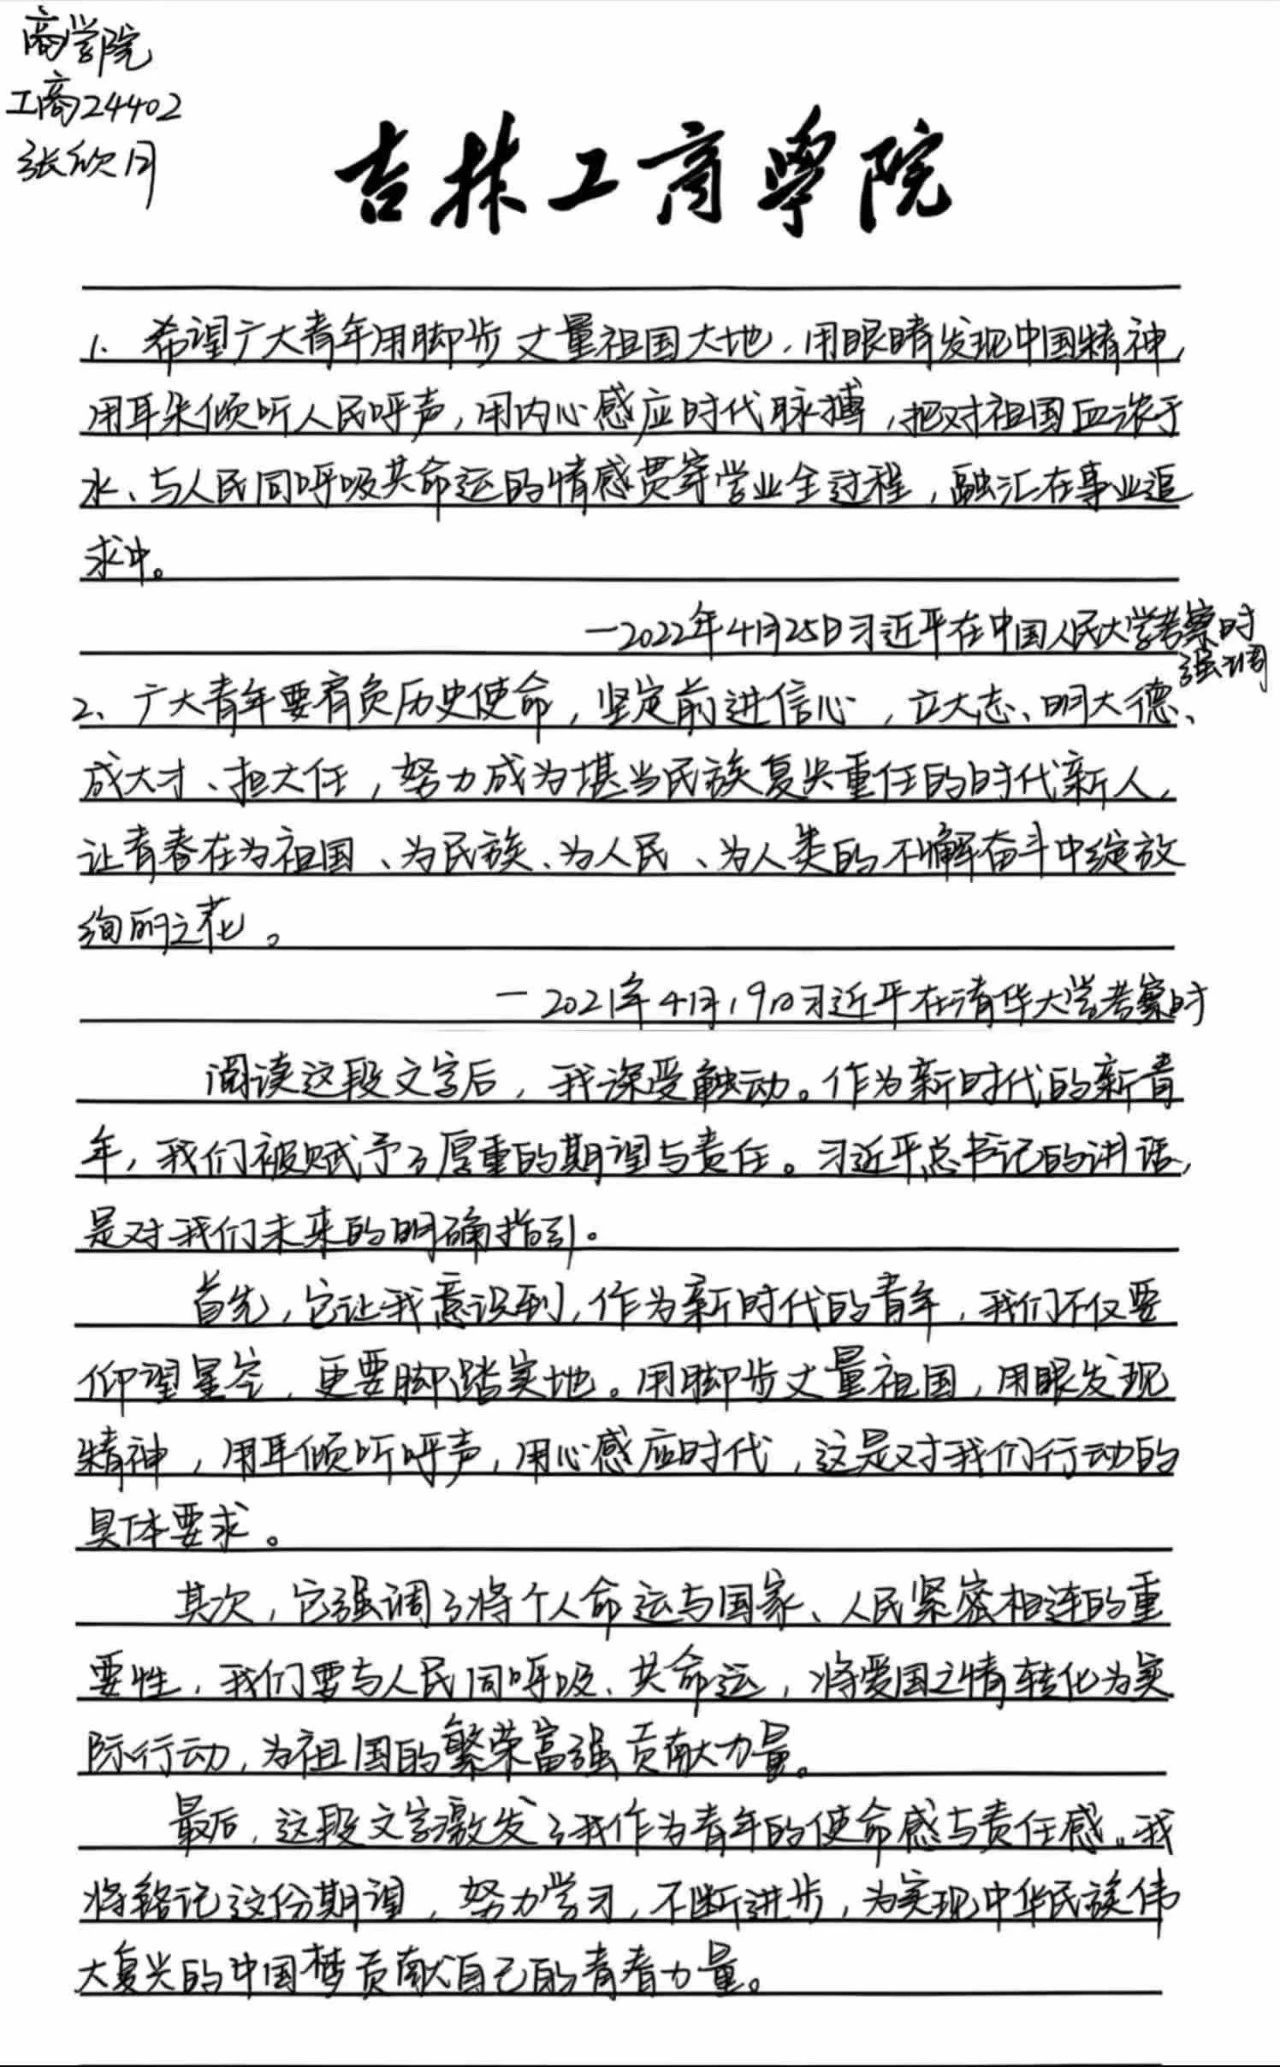 商学院
工商24402
张欣月
吉林工商學院
1、希望广大青年用脚步丈量祖国大地，用眼睛发现中国精神，
用耳朵倾听人民呼声，用内心感应时代脉搏，把对祖国血浓于
水、与人民同呼吸共命运的情感贯穿学业全过程，融汇在事业追
求中。
—2022年4月25日习近平在中国人民大学考察时
强调
2、广大青年要肩负历史使命，坚定前进信心，立大志、明大德、
成大才、担大任，努力成为堪当民族复兴重任的时代新人，
让青春在为祖国、为民族、为人民、为人类的不懈奋斗中绽放
绚丽之花。
—2021年4月19日习近平在清华大学考察时
阅读这段文字后，我深受触动。作为新时代的新青
年，我们被赋予了厚重的期望与责任。习近平总书记的讲话，
是对我们未来的明确指引。
首先，它让我意识到，作为新时代的青年，我们不仅要
仰望星空，更要脚踏实地。用脚步丈量祖国，用眼发现
精神，用耳倾听呼声，用心感应时代，这是对我们行动的
具体要求。
其次，它强调了将个人命运与国家、人民紧密相连的重
要性，我们要与人民同呼吸、共命运，将爱国之情转化为实
际行动，为祖国的繁荣富强贡献力量。
最后，这段文字激发了我作为青年的使命感与责任感。我
将铭记这份期望，努力学习，不断进步，为实现中华民族伟
大复兴的中国梦贡献自己的青春力量。